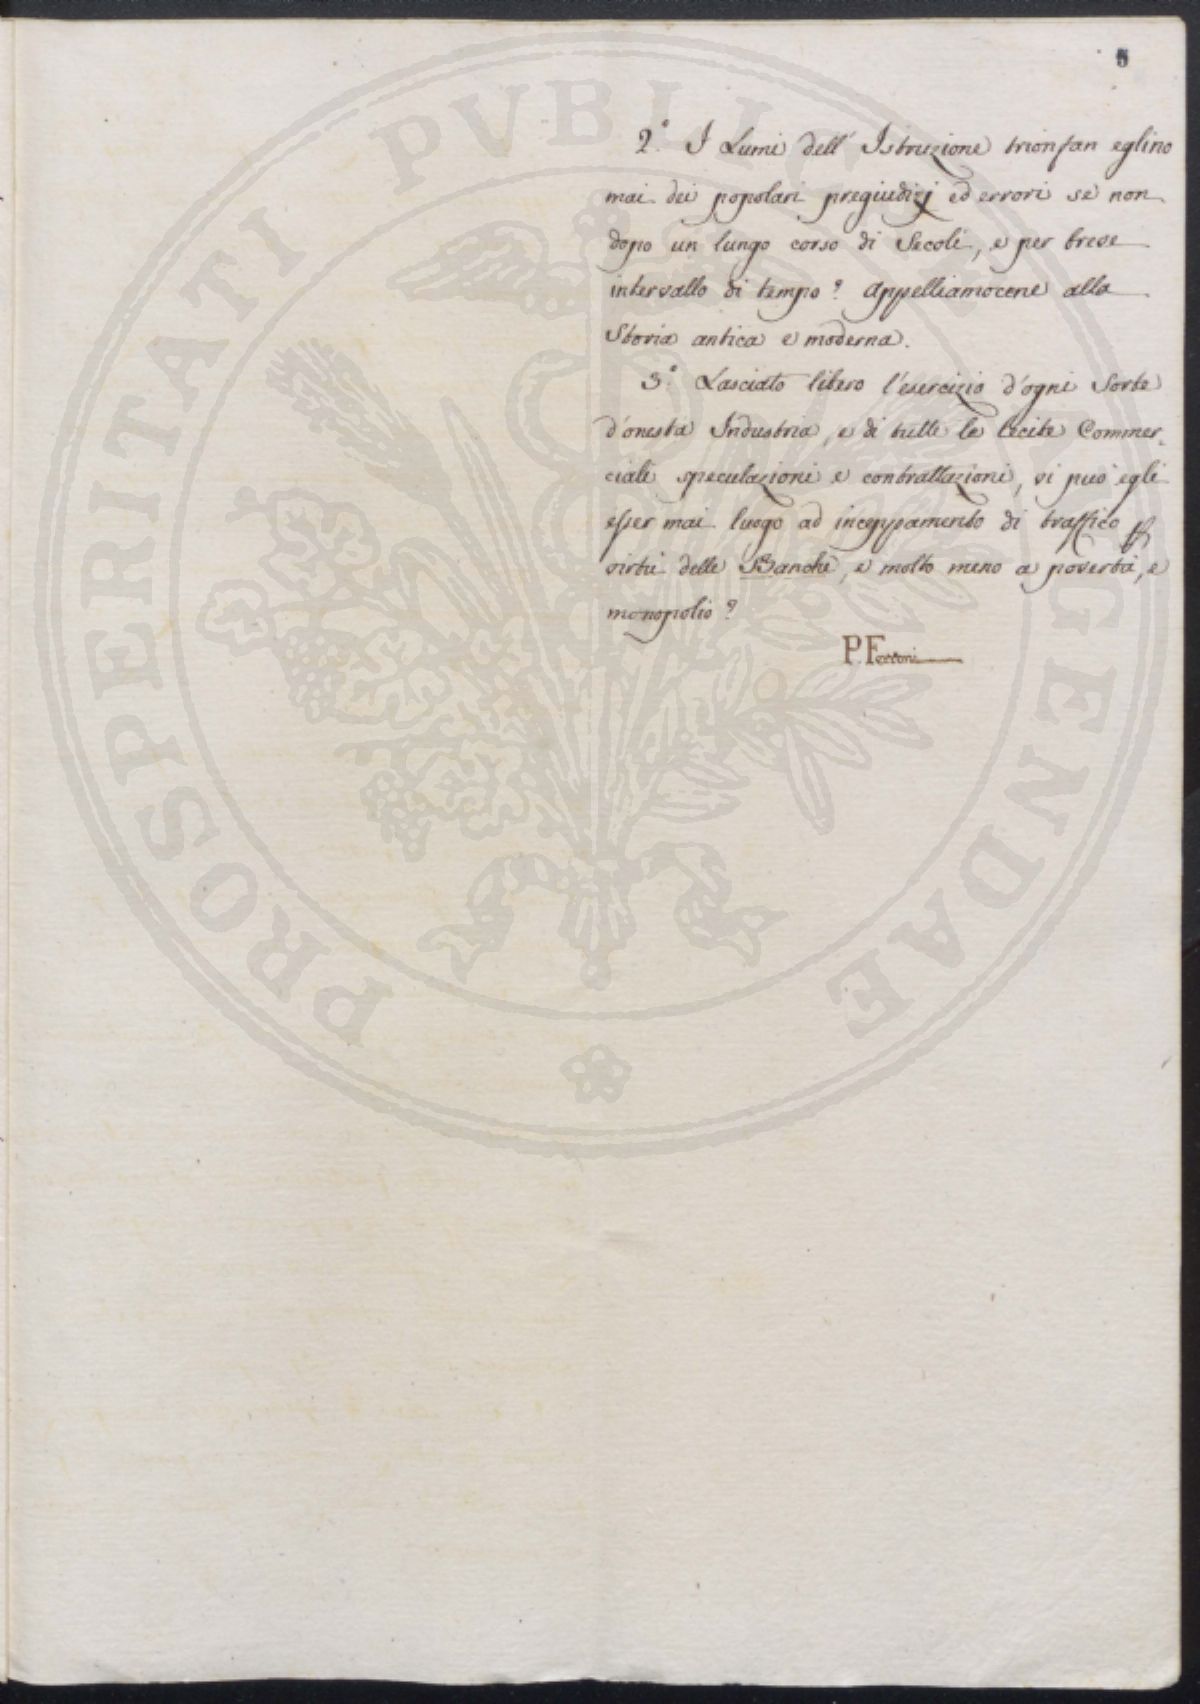 5
2.° I Lumi dell' Istruzione trionfan eglino
mai dei popolari pregiudizj ed errori se non
dopo un lungo corso di Secoli, e per breve
intervallo di tempo? Appelliamocene alla
Storia antica e moderna.
3.° Lasciato libero l'esercizio d'ogni Sorte
d'onesta Industria, e di tutte le lecite Commer-
ciali speculazioni e contrattazioni, vi può egli
esser mai luogo ad inceppamento di traffico
virtù delle Banche, e molto meno a povertà, e
monopolio?
P. Ferroni
PROSPERITATI PVBLICAE AVGENDAE